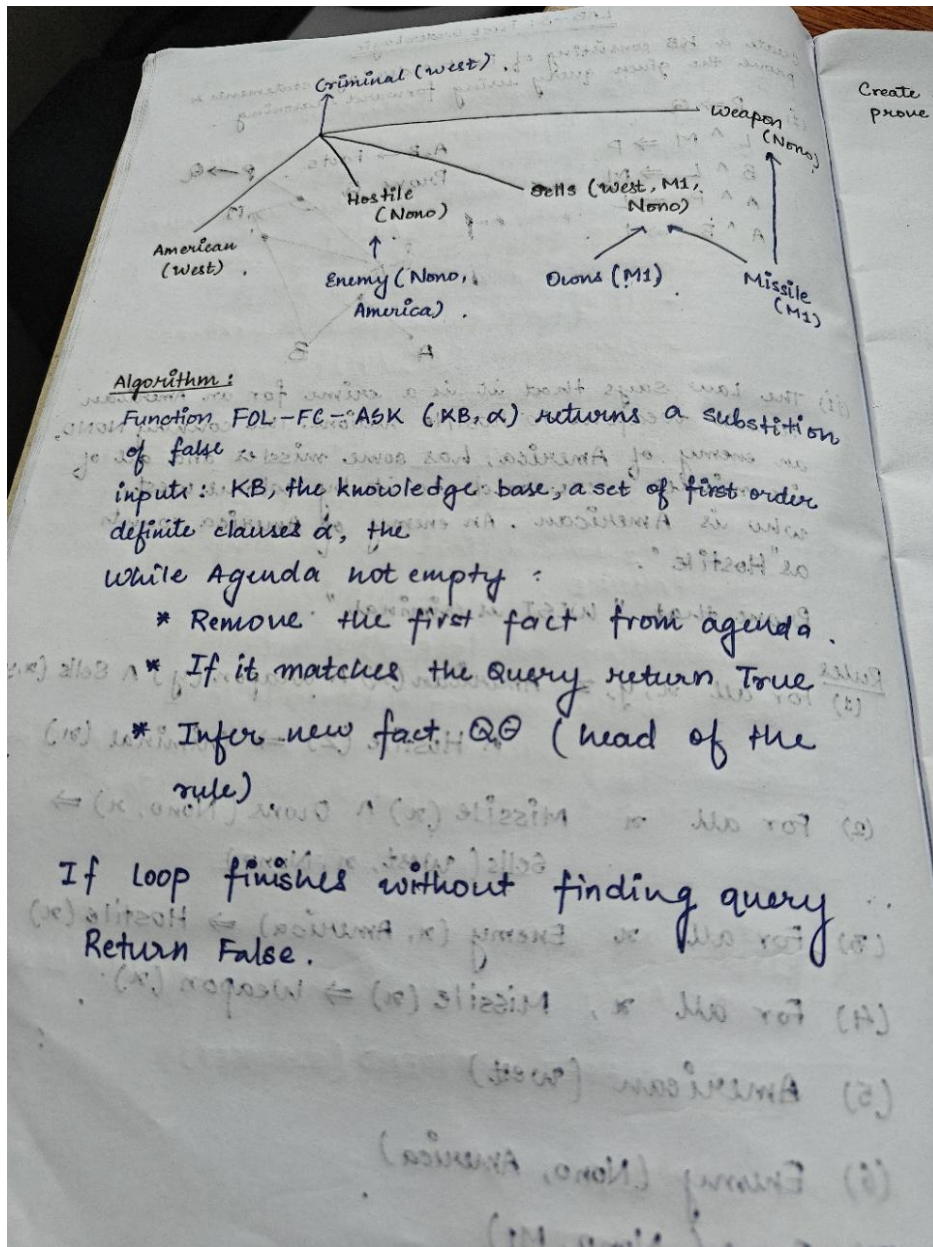 Criminal (West).
Weapon
(Nono)
Hostile
(Nono)
Sells (West, M1,
Nono)
American
(West).
Enemy (Nono,
America).
Owns (M1)
Missile
(M1)
Algorithm:
Function FOL-FC-ASK (KB, α) returns a substition
of false
inputs: KB, the knowledge base, a set of first order
definite clauses α, the
While Agenda not empty:
* Remove the first fact from agenda.
* If it matches the Query return True
* Infer new fact QΘ (head of the
rule)
If loop finishes without finding query
Return False.
Create
prove